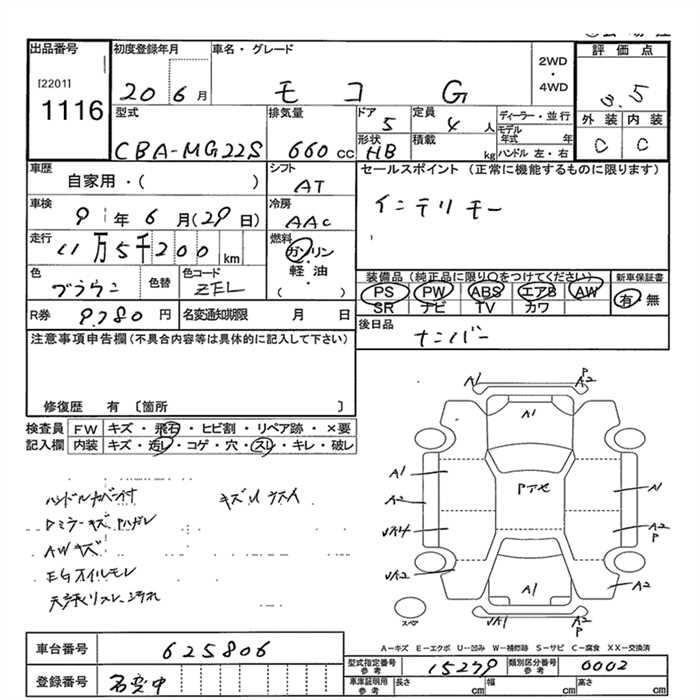 出品番号 初度登録年月 車名・グレード 2WD・4WD 評価点
[2201]
1116 20 6月 モコ G 3.5
型式 排気量 ドア 5 定員 4 人 ディーラー・並行 外装 内装
CBA-MG22S 660 cc 形状 HB 積載 kg モデル年式 年 C C
ハンドル 左・右
車歴 シフト セールスポイント (正常に機能するものに限ります)
自家用・( ) AT
車検 冷房 インテリキー
9年6月(29日) AAC
走行 燃料
11万5千200km ガソリン・軽油・( )
装備品(純正品に限り○をつけてください) 新車保証書
色 ブラウン 色替 色コード ZFL
PS PW ABS エアB AW 有・無
SR ナビ TV カワ
R券 9,780円 名変通知期限 月 日
後日品 ナンバー
注意事項申告欄(不具合内容等は具体的に記入して下さい)
修復歴 有 〔箇所 〕
検査員 FW キズ・飛石・ヒビ割・リペア跡・×要
記入欄 内装 キズ・汚レ・コゲ・穴・スレ・キレ・破レ
ハンドルカバー付 キズ
ドミラーキズ
AWキズ
EGオイルモレ
天張リスレ、汚れ
A1 P A2
A1
A1
A2 A1
A2 P
A2 A2
A1
UA2 P A2
スペア
A―キズ E―エクボ U―凹み W―補修跡 S―サビ C―腐食 XX―交換済
車台番号 625806
型式指定番号 参考 15279 類別区分番号 参考 0002
登録番号 名変中
車庫証明用 参考 長さ cm 幅 cm 高さ cm